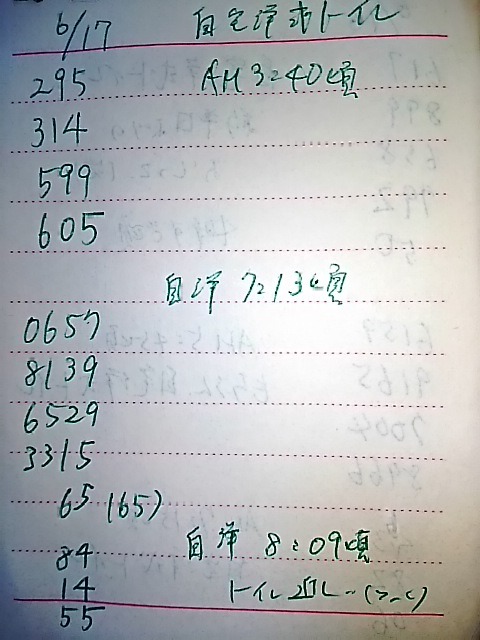 6/17 自宅洋式トイレ
295 AM 3:40頃
314
599
605
自洋 7:13頃
0657
8139
6529
3315
65 (65)
自洋 8:09頃
84
14 トイレ
55